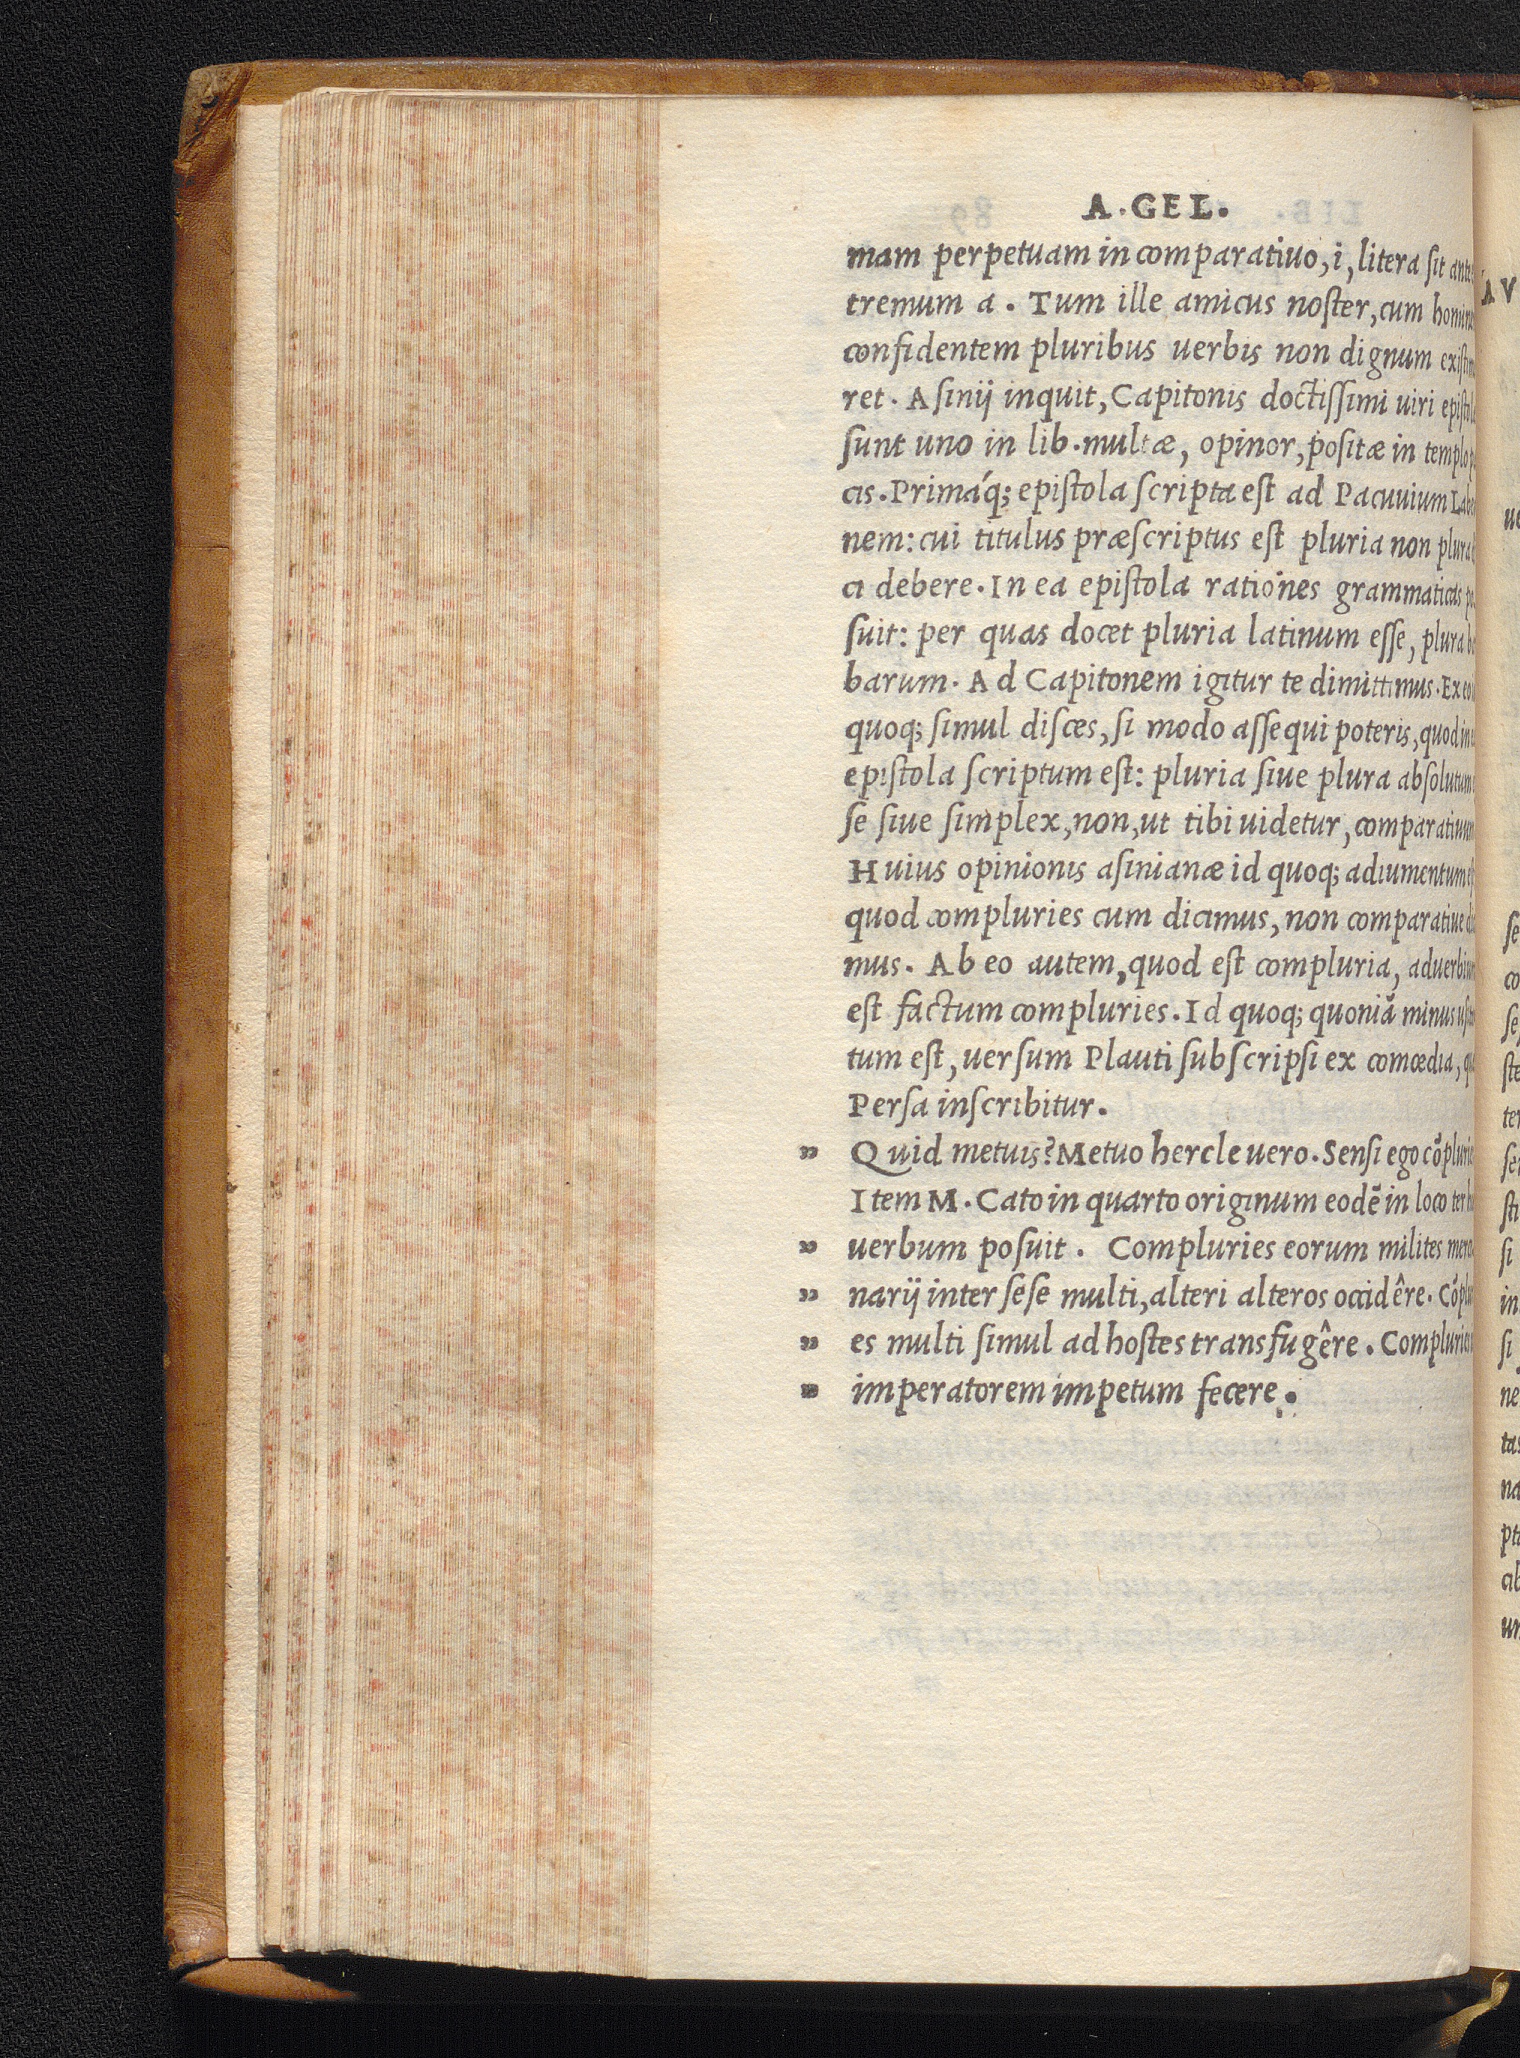 A.GEL.
mam perpetuam in comparatiuo, i, litera ſit
tremum a. Tum ille amicus noſter, cum
confidentem pluribus uerbis non dignum
ret. Aſinij inquit, Capitonis doctiſſimi uiri
ſunt uno in lib. multæ, opinor, poſitæ in templo
cis. Primáq; epiſtola ſcripta eſt ad Pacuuium
nem: cui titulus præſcriptus eſt pluria non
ci debere. In ea epiſtola rationes grammaticas
ſuit: per quas docet pluria latinum eſſe, plura
barum. Ad Capitonem igitur te dimittimus. Ex
quoq; ſimul diſces, ſi modo aſſequi poteris, quod in
epiſtola ſcriptum eſt: pluria ſiue plura abſolutum
ſe ſiue ſimplex, non, ut tibi uidetur,
Huius opinionis aſinianæ id quoq; adiumentum
quod compluries cum dicimus, non comparatiue
mus. Ab eo autem, quod eſt compluria,
eſt factum compluries. Id quoq; quoniã minus
tum eſt, uerſum Plauti ſubſcripſi ex comœdia,
Perſa inſcribitur.
„ Quid metuis? Metuo hercle uero. Senſi ego
Item M. Cato in quarto originum eodẽ in loco ter
„ uerbum poſuit. Compluries eorum milites
„ narij inter ſeſe multi, alteri alteros occidêre.
„ es multi ſimul ad hoſtes transfugêre.
„ imperatorem impetum fecere.
AV
ſe
co
ſte
ſti
ſi
in
ſi
ne